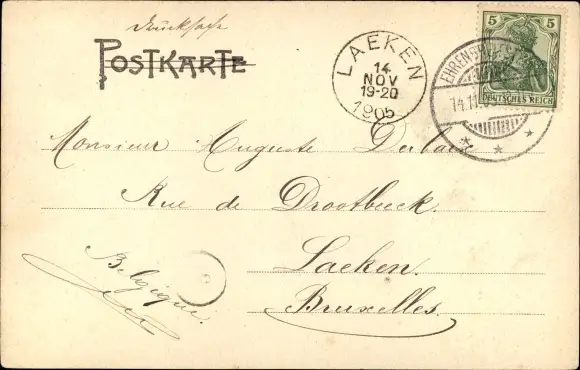 Drucksache
POSTKARTE
LAEKEN
14
NOV
19-20
1905
5 5
DEUTSCHES REICH
14.11
Monsieur Auguste
Rue de Drootbeeck.
Laeken.
Bruxelles.
Belgique.